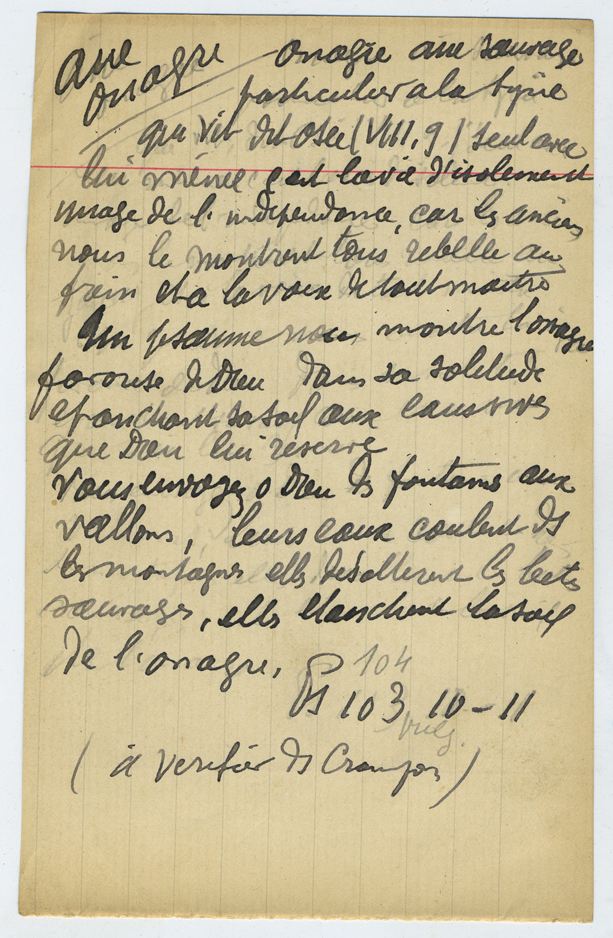 ane
onagre
onagre ane sauvage
particulier a la Syrie
qui vit dit osée (VIII, 9) seul avec
lui même c est la vie d'isolement
image de l'independance, car les anciens
nous le montrent tous rebelle au
frein et a la voix de tout maitre
Un psaume nous montre l'onagre
farouse de Dieu dans sa solitude
etanchant sa soif aux eaux vives
que Dieu lui reserve
Vous envoyez o Dieu ds fontaines aux
vallons, leurs eaux coulent ds
les montagnes elles désalterent les betes
sauvages, elles etanchent la soif
de l'onagre.
104
Ps 103 10-11
vulg.
(à verifier ds Crampon)